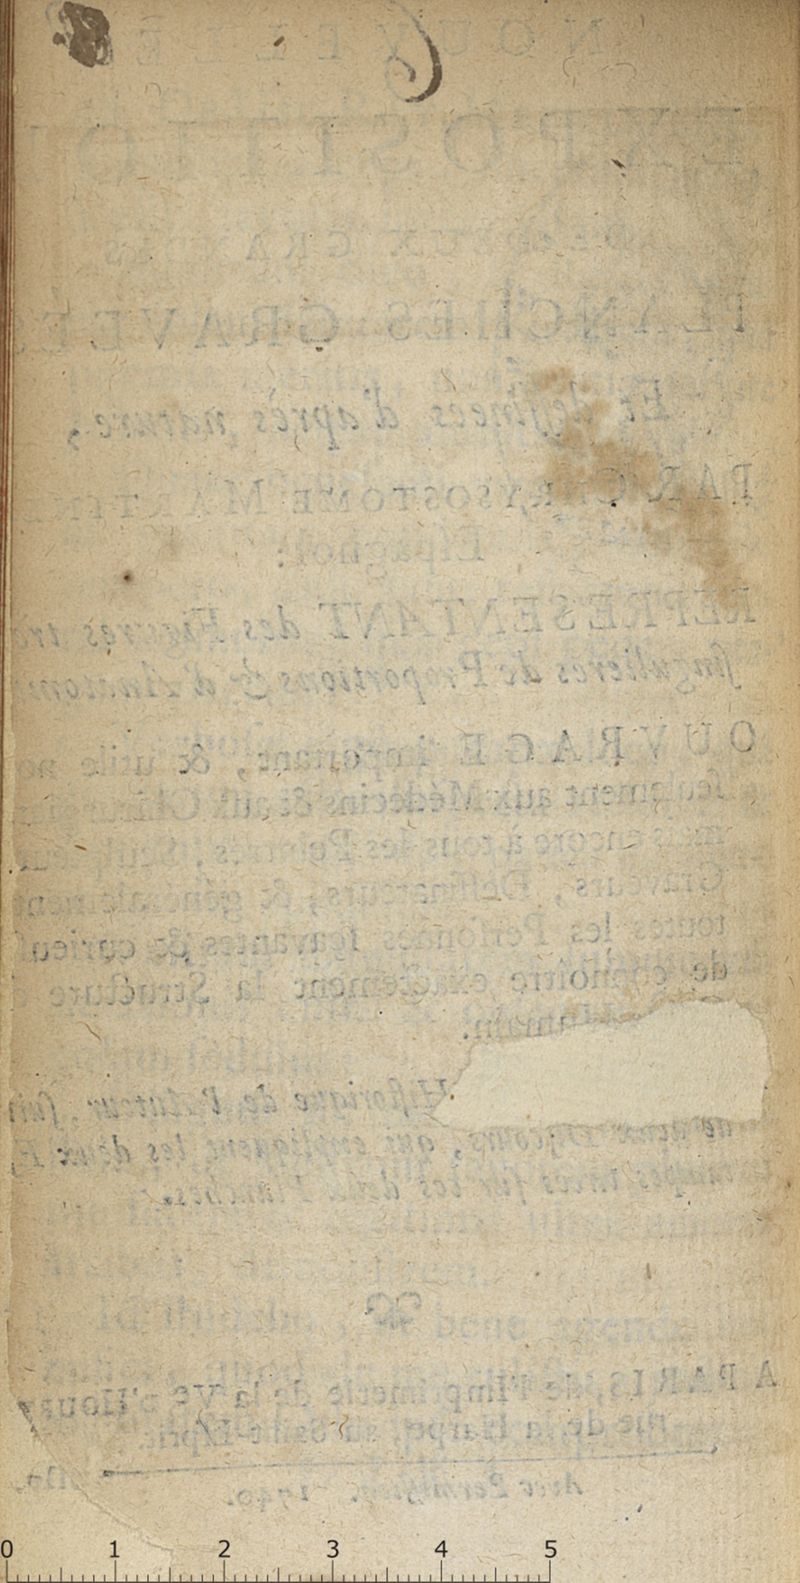 NOUVELLE
EXPOSITION
DE DEUX GRANDES
PLANCHES GRAVÉES
Et dessinées d'après nature,
PAR CHRYSOSTOME MARTINE
Espagnol:
REPRESENTANT des Figures tre
singulieres de Proportions & d'Anatomi
OUVRAGE important, & utile no
seulement aux Médecins & aux Chirurgien
mais encore à tous les Peintres, Sculpteur
Graveurs, Dessinateurs, & généralement
toutes les Personnes sçavantes & curieus
de connoître exactement la Structure
Humain.
Historique de l'Auteur, sui
de deux Discours, qui expliquent les deux E
tampes tirées sur les deux Planches.
A PARIS, de l'Imprimerie de la Ve D'Houry
rue de la Harpe, au Saint-Esprit.
Avec Permission. 1740.
0 1 2 3 4 5